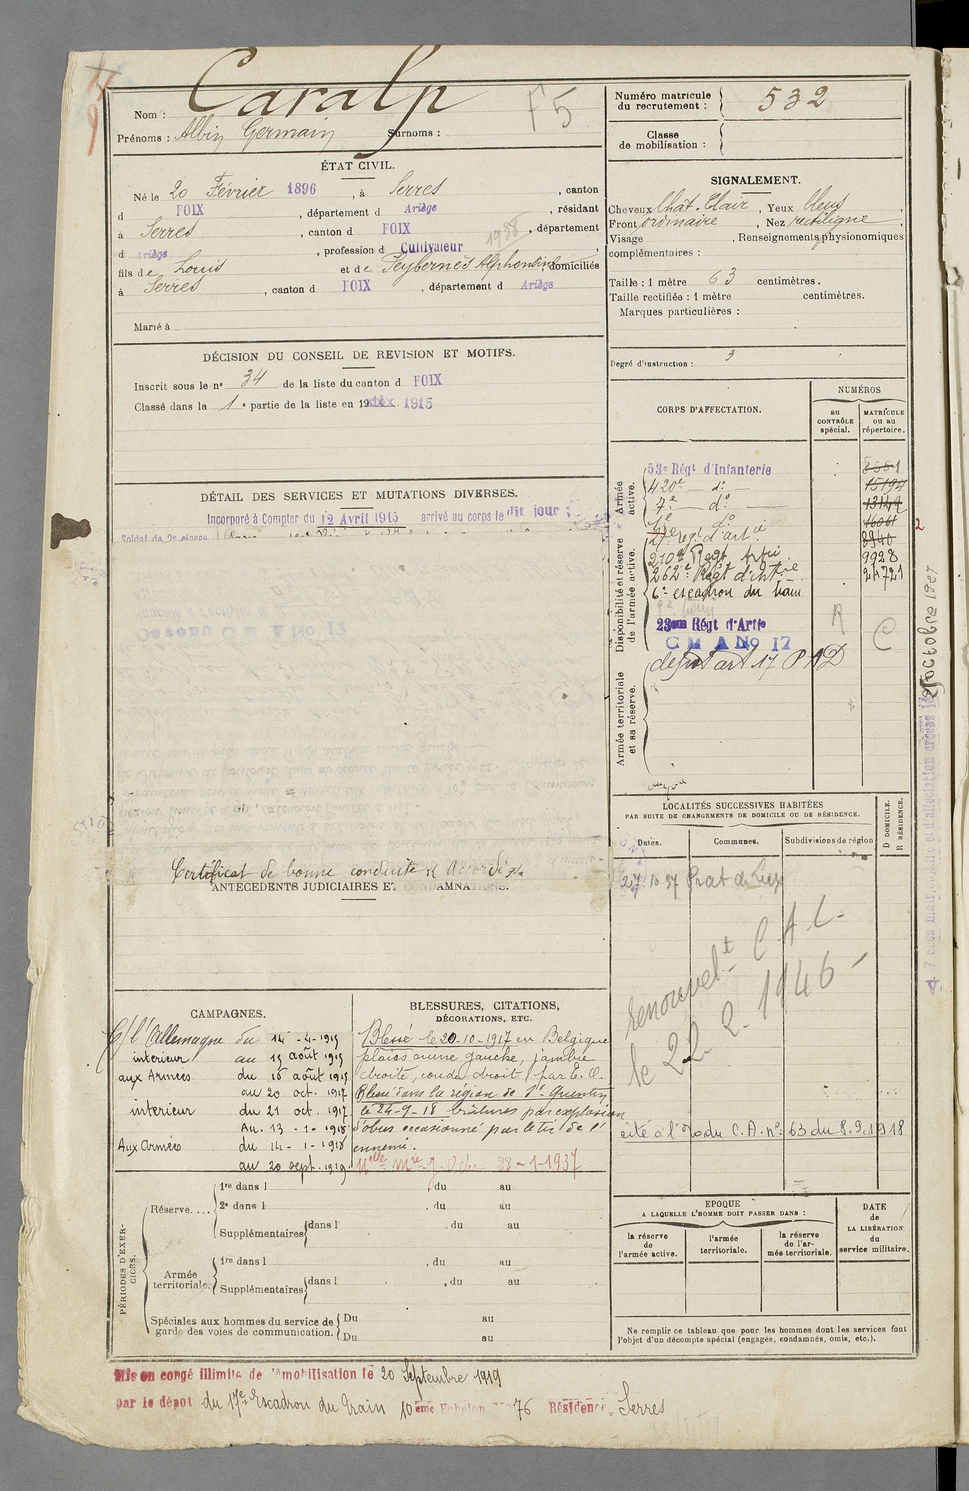 Nom : Caralp
Prénoms : Albin Germain Surnoms :
F5
Numéro matricule du recrutement : 532
Classe de mobilisation :
ÉTAT CIVIL.
Né le 20 Février 1896, à Serres, canton
d FOIX, département d Ariège, résidant
à Serres, canton d FOIX, département
d Ariège, profession d Cultivateur
1938
fils de Louis et de Peybernès Alphonsine, domiciliés
à Serres, canton d FOIX, département d Ariège
Marié à
SIGNALEMENT.
Cheveux Chât. Clair, Yeux bleus,
Front ordinaire, Nez rectiligne,
Visage , Renseignements physionomiques
complémentaires :
Taille : 1 mètre 63 centimètres.
Taille rectifiée : 1 mètre centimètres.
Marques particulières :
Degré d'instruction : 3
DÉCISION DU CONSEIL DE REVISION ET MOTIFS.
Inscrit sous le nº 34 de la liste du canton d FOIX
Classé dans la 1e partie de la liste en 19 1915
DÉTAIL DES SERVICES ET MUTATIONS DIVERSES.
Incorporé à Compter du 12 Avril 1915 arrivé au corps le dit jour
Soldat de 2e classe
Certificat de bonne conduite "Accordé"
ANTECEDENTS JUDICIAIRES ET CONDAMNATIONS.
CORPS D'AFFECTATION.
NUMÉROS
au CONTRÔLE spécial.
MATRICULE ou au répertoire.
Armée active.
53e Régt d'Infanterie
420e — d: —
7e — do —
Disponibilité et réserve de l'armée active.
210e Regt Artie 9928
262e Régt d'Artie 24721
6e escadron du train
23eme Régt d'Artie
C M A No 17
R
C
Armée territoriale et sa réserve.
dépôt art 17 PAD
octobre 1927
LOCALITÉS SUCCESSIVES HABITÉES
PAR SUITE DE CHANGEMENTS DE DOMICILE OU DE RÉSIDENCE.
Dates. Communes. Subdivisions de région
D DOMICILE. R RÉSIDENCE.
27 10 37 Prat de Lux
renouvelt C A C
le 22 2 1946
cité à l'O du C.A. nº 63 du 8.9.1918
CAMPAGNES.
C/ l'Allemagne du 14-4-1915
intérieur au 15 août 1915
aux Armées du 16 août 1915
au 20 oct. 1917
intérieur du 21 oct. 1917
Au. 13-1-1918
Aux Armées du 14-1-1918
au 20 sept. 1919.
BLESSURES, CITATIONS, DÉCORATIONS, ETC.
Blessé le 20-10-1917 en Belgique
plaies cuisse gauche, jambe
droite, coude droit par E.O.
Blessé dans la région de St Quentin
le 24-9-18 brûlures par explosion
d'obus occasionné par le tir de l'
ennemi.
28-1-1937
PÉRIODES D'EXERCICES.
Réserve....
1re dans l , du au
2e dans l , du au
Supplémentaires dans l , du au
Armée territoriale.
1re dans l , du au
Supplémentaires dans l , du au
Spéciales aux hommes du service de garde des voies de communication.
Du au
Du au
EPOQUE
A LAQUELLE L'HOMME DOIT PASSER DANS :
la réserve de l'armée active.
l'armée territoriale.
la réserve de l'armée territoriale.
DATE de LA LIBÉRATION du service militaire.
Ne remplir ce tableau que pour les hommes dont les services font
l'objet d'un décompte spécial (engagés, condamnés, omis, etc.).
Mis en congé illimité de démobilisation le 20 Septembre 1919
par le dépôt du 17e Escadron du Train 10eme Echelon No 76 Résidence Serres